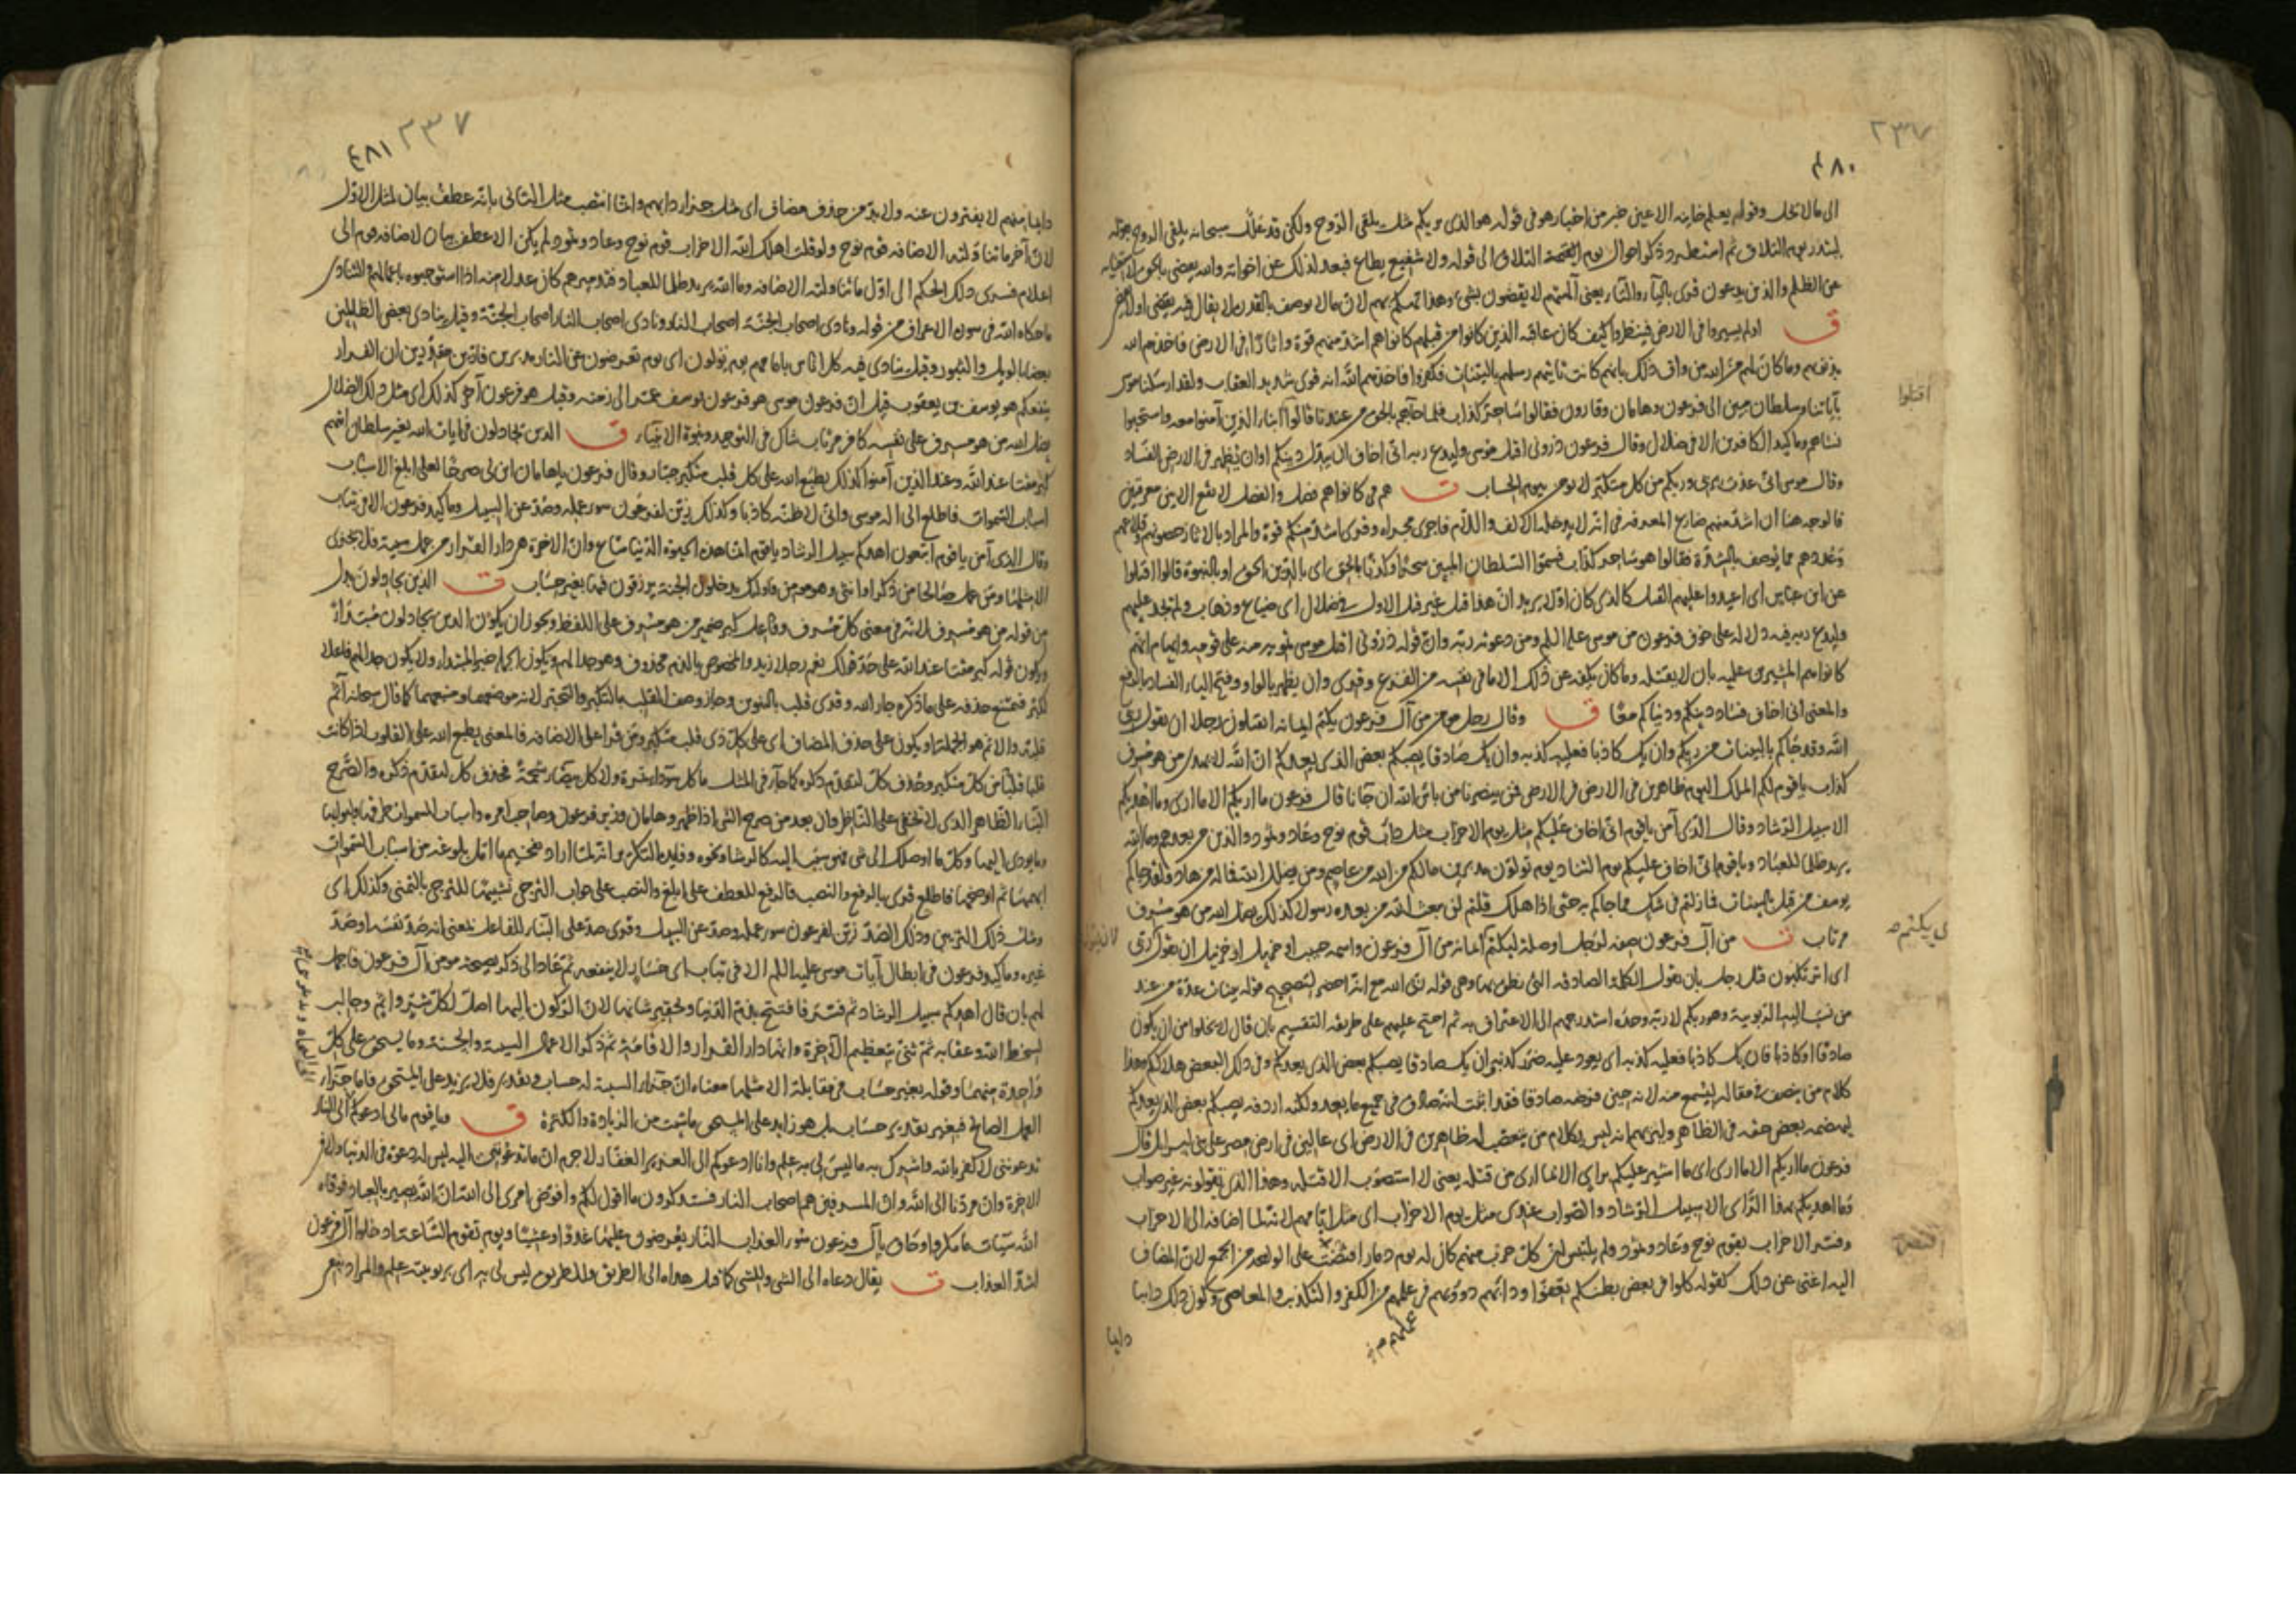 ٢٣٧
٤٨٠
الى مالا يحل وقوله يعلم خاينه الاعين خبر من اخبار هو فى قوله هو الذى يريكم مثل يلقى الروح ولكن قد علل سبحانه يلقى الروح بقوله
لينذر يوم التلاق ثم استطرد ذكر احوال يوم التلاق الى قوله ولا شفيع يطاع فبعد لذلك عن اخواته والله يقضى بالحق
عن الظلم والذين يدعون قرى بالياء والتاء يعنى آلهتهم لا يقضون بشىء وهذا تهكم بهم لان مالا يوصف بالقدرة لا يقال فيه يقضى اولا يقضى
ق اولم يسيروا فى الارض فينظروا كيف كان عاقبه الذين كانوا من قبلهم كانوا هم اشد منهم قوة واثارا فى الارض فاخذهم الله
بذنوبهم وما كان لهم من الله من واق ذلك بانهم كانت تاتيهم رسلهم بالبينات فكفروا فاخذهم الله انه قوى شديد العقاب ولقد ارسلنا موسى
بآياتنا وسلطان مبين الى فرعون وهامان وقارون فقالوا ساحر كذاب فلما جاءهم بالحق من عندنا قالوا اقتلوا ابناء الذين آمنوا معه واستحيوا
نساءهم وما كيد الكافرين الا فى ضلال وقال فرعون ذرونى اقتل موسى وليدع ربه انى اخاف ان يبدل دينكم او ان يظهر فى الارض الفساد
وقال موسى انى عذت بربى وربكم من كل متكبر لا يومن بيوم الحساب ت هم فى كانوا هم فصل والفصل لا يقع الا بين معرفتين
فالوجه هنا ان اشد منهم ضارع المعرفه فى انه لا يدخله الالف واللام فاجرى مجراه وقرى اشد منكم قوة والمراد بالاثار حصونهم وقلاعهم
وعددهم مما يوصف بالشدة فقالوا هو ساحر كذاب فسموا السلطان المبين سحرا وكذبا بالحق اى بالدين الحق او بالنبوة قالوا اقتلوا
عن ابن عباس اى اعيدوا عليهم القتل كالذى كان اولا يريد ان هذا قتل غير القتل الاول فى ضلال اى ضياع وذهاب ولم يجد عليهم
وليدع ربه فيه دلاله على خوف فرعون من موسى عليه السلم ومن دعوته ربه وان قوله ذرونى اقتل موسى تمويه منه على قومه وايهام انهم
كانوا هم المشيرين عليه بان لا يقتله وما كان يكفه عن ذلك الا ما فى نفسه من الفزع وقرى وان يظهر بالواو وفتح الياء والفساد بالرفع
والمعنى انى اخاف فساد دينكم ودنياكم معا ق وقال رجل مومن من آل فرعون يكتم ايمانه اتقتلون رجلا ان يقول ربى
الله وقد جاءكم بالبينات من ربكم وان يك كاذبا فعليه كذبه وان يك صادقا يصبكم بعض الذى يعدكم ان الله لا يهدى من هو مسرف
كذاب يا قوم لكم الملك اليوم ظاهرين فى الارض فمن ينصرنا من باس الله ان جانا قال فرعون ما اريكم الا ما ارى وما اهديكم
الا سبيل الرشاد وقال الذى آمن يا قوم انى اخاف عليكم مثل يوم الاحزاب مثل داب قوم نوح وعاد وثمود والذين من بعدهم وما الله
يريد ظلما للعباد ويا قوم انى اخاف عليكم يوم التناد يوم تولون مدبرين مالكم من الله من عاصم ومن يضلل الله فما له من هاد ولقد جاكم
يوسف من قبل بالبينات فما زلتم فى شك مما جاكم به حتى اذا هلك قلتم لن يبعث الله من بعده رسولا كذلك يضل الله من هو مسرف
مرتاب ت من آل فرعون صفه لرجل او صلة ليكتم اى يكتم ايمانه من آل فرعون واسمه حبيب او خربيل او حزبيل ان يقول ربى
اى اترتكبون قتل رجل بان يقول الكلمة الصادقه التى نطق بها وهى قوله ربى الله مع انه احضر لتصحيح قوله بينات عدة من عند
من نسب اليه الربوبية وهو ربكم لا ربه وحده استدرجهم الى الاعتراف به ثم احتج عليهم على طريقه التقسيم بان قال لا يخلوا من ان يكون
صادقا او كاذبا فان يك كاذبا فعليه كذبه اى يعود عليه ضرر كذبه وان يك صادقا يصبكم بعض الذى يعدكم وفى ذلك البعض هلاككم وهذا
كلام من ينصف فى مقاله ليسمع منه لانه حين فرضه صادقا فقد اثبت انه صادق فى جميع ما يعد ولكنه اردفه يصبكم بعض الذى يعدكم
ليهضمه بعض حقه فى الظاهر وليريهم انه ليس بكلام من يتعصب له ظاهرين فى الارض اى عالين فى ارض مصر على بنى اسرايل قال
فرعون ما اريكم الا ما ارى اى ما اشير عليكم براى الا بما ارى من قتله يعنى لا استصوب الا قتله وهذا الذى تقولونه غير صواب
وما اهديكم بهذا الراى الا سبيل الرشاد والصواب عندى مثل يوم الاحزاب اى مثل ايامهم لانه لما اضافه الى الاحزاب
وفسر الاحزاب بقوم نوح وعاد وثمود ولم يلتبس ان كل حزب منهم كان له يوم دمار اقتصر على الواحد من الجمع لان المضاف
اليه اغنى عن ذلك كقوله كلوا فى بعض بطنكم تعفوا ودابهم دووبهم فى عملهم من الكفر والتكذيب والمعاصى وكون ذلك دايبا
دايبا
اقتلوا
اى يكتم
عملهم
٢٣٧
٤٨١
دايبا منهم لا يفترون عنه ولا بد من حذف مضاف اى مثل جزاء دابهم وانما انتصب مثل الثانى بانه عطف بيان لمثل الاول
لان آخر ما تناولته الاضافه قوم نوح ولو قلت اهلك الله الاحزاب قوم نوح وعاد وثمود لم يكن الا عطف بيان لاضافه قوم الى
اعلام فسرى ذلك الحكم الى اول ما تناولته الاضافه وما الله يريد ظلما للعباد فتدميرهم كان عدلا منه اذا استوجبوه باعمالهم التنادى
ما حكاه الله فى سوره الاعراف من قوله ونادى اصحاب الجنة اصحاب النار ونادى اصحاب النار اصحاب الجنة وقيل ينادى بعض الظالمين
بعضا بالويل والثبور وقيل ينادى فيه كل اناس بامامهم يوم تولون اى يوم تعرضون عن النار مدبرين فارين مقدرين ان الفرار
ينفعكم هو يوسف بن يعقوب قيل ان فرعون موسى هو فرعون يوسف عمر الى زمنه وقيل هو فرعون آخر كذلك اى مثل ذلك الضلال
يضل الله من هو مسرف على نفسه كافر مرتاب شاك فى التوحيد ونبوة الانبياء ق الذين يجادلون فى ايات الله بغير سلطان اتيهم
كبر مقتا عند الله وعند الذين آمنوا كذلك يطبع الله على كل قلب متكبر جبار وقال فرعون يا هامان ابن لى صرحا لعلى ابلغ الاسباب
اسباب السموات فاطلع الى اله موسى وانى لاظنه كاذبا وكذلك زين لفرعون سوء عمله وصد عن السبيل وما كيد فرعون الا فى تباب
وقال الذى آمن يا قوم اتبعون اهدكم سبيل الرشاد يا قوم انما هذه الحيوة الدنيا متاع وان الاخرة هى دار القرار من عمل سيئة فلا يجزى
الا مثلها ومن عمل صالحا من ذكر او انثى وهو مومن فاولئك يدخلون الجنة يرزقون فيها بغير حساب ت الذين يجادلون بدل
من قوله من هو مسرف لانه فى معنى كل مسرف وفاعل كبر ضمير من هو مسرف على اللفظ ويجوز ان يكون الذين يجادلون مبتدأ
ويكون قوله كبر مقتا عند الله على حد قولك نعم رجلا زيد والمخصوص بالذم محذوف وهو جدالهم ويكون الجمله خبر المبتداء ولا يكون جدالهم فاعلا
لكبر فيمتنع حذفه على ما ذكره جار الله وقرى قلب بالتنوين وجاز وصف القلب بالتكبر والتجبر لانه موضعهما ومنبعهما كما قال سبحانه آثم
قلبه والاثم هو الجملة او يكون على حذف المضاف اى على كل ذى قلب متكبر ومن قرا على الاضافه فالمعنى يطبع الله على القلوب اذا كانت
قلبا قلبا من كل متكبر وحذف كل لتقدم ذكره كما جاء فى المثل ما كل سوداء تمرة ولا كل بيضاء شحمة فحذف كل لتقدم ذكره والصرح
البناء الظاهر الذى لا يخفى على الناظر وان بعد من صرح الشى اذا ظهر وهامان وزير فرعون وصاحب امره واسباب السموات طرقها وابوابها
وما يودى اليها وكل ما اوصلك الى شى فهو سبب اليه كالرشاء ونحوه وفايده التكرير انه لما اراد تفخيم ما امل بلوغه من اسباب السموات
ابهمها ثم اوضحها فاطلع قرى بالرفع والنصب فالرفع للعطف على ابلغ والنصب على جواب الترجى تشبيها للترجى بالتمنى وكذلك اى
ومثل ذلك التزيين وذلك الصد زين لفرعون سوء عمله وصد عن السبيل وقرى صد على البناء للفاعل بمعنى انه صد نفسه او صد
غيره وما كيد فرعون فى ابطال آيات موسى عليه السلم الا فى تباب اى خسار لا ينفعه ثم عاد الى ذكر نصيحه مومن آل فرعون فاجمل
لهم بان قال اهدكم سبيل الرشاد ثم فسر فافتتح بذم الدنيا وتحقير شانها لان الركون اليها اصل لكل شر واثم وجالب
لسخط الله وعقابه ثم ثنى بتعظيم الآخرة وانها دار القرار والاقامة ثم ذكر الاعمال السيئه والحسنه وما يستحق على كل
واحدة منهما وقوله بغير حساب فى مقابلة الا مثلها معناه ان جزاء السيئه له حساب وتقدير فلا يزيد على المستحق فاما جزاء
العمل الصالح فبغير تقدير حساب بل هو زايد على المستحق ما شئت من الزيادة والكثرة ق ويا قوم مالى ادعوكم الى النار
تدعوننى لاكفر بالله واشرك به ما ليس لى به علم وانا ادعوكم الى العزيز الغفار لا جرم ان ما تدعوننى اليه ليس له دعوة فى الدنيا ولا فى
الاخرة وان مردنا الى الله وان المسرفين هم اصحاب النار فستذكرون ما اقول لكم وافوض امرى الى الله ان الله بصير بالعباد فوقاه
الله سيئات ما مكروا وحاق بآل فرعون سوء العذاب النار يعرضون عليها غدوا وعشيا ويوم تقوم الساعة ادخلوا آل فرعون
اشد العذاب ت يقال دعاه الى الشى وللشى كما قيل هداه الى الطريق وللطريق ليس لى به اى بربوبيته علم والمراد بنفى